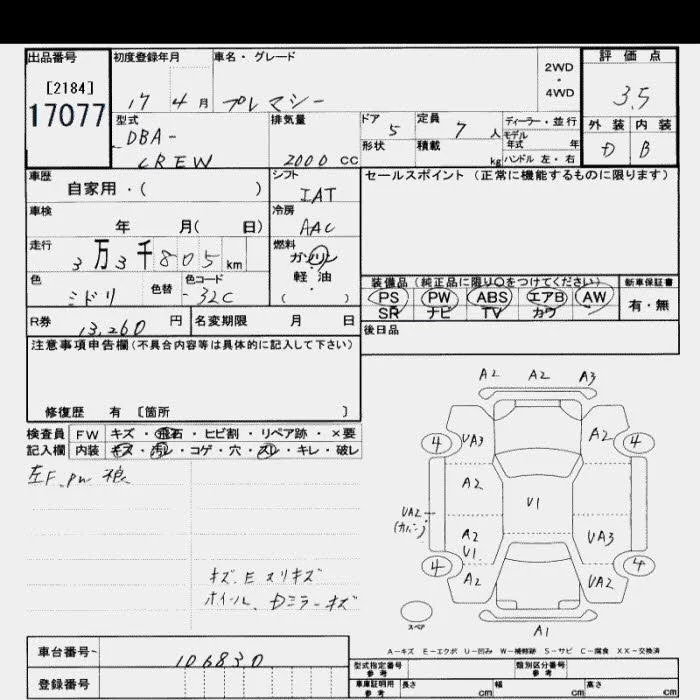 出品番号
[2184]
17077
初度登録年月
17 4月
車名・グレード
プレマシー
2WD
・
4WD
評価点
3.5
外装 内装
D B
型式
DBA-
CREW
排気量
2000 cc
ドア
5
形状
定員
7 人
積載
kg
ディーラー・並行
モデル
年式 年
ハンドル 左・右
車歴
自家用・( )
シフト
IAT
セールスポイント(正常に機能するものに限ります)
車検
年 月( 日)
冷房
AAC
走行
3万3千805km
燃料
ガソリン
軽・油
( )
色
ミドリ
色替
色コード
-32C
装備品(純正品に限り○をつけてください)
PS PW ABS エアB AW
SR ナビ TV カワ
新車保証書
有・無
R券
13,260 円
名変期限 月 日
後日品
注意事項申告欄(不具合内容等は具体的に記入して下さい)
修復歴 有 〔箇所 〕
検査員
記入欄
FW キズ・飛石・ヒビ割・リペア跡・×要
内装 キズ・汚レ・コゲ・穴・スレ・キレ・破レ
左F.PW
キズ.E スリキズ
ホイール、Dミラーキズ
A2 A2 A3
4 UA3 A2 4
A2
V1
UA2
(カバン)
A2
V1
UA3
4 A2 UA2 4
スペア
A1
A-キズ E-エクボ U-凹み W-補修跡 S-サビ C-腐食 XX-交換済
車台番号
106830
登録番号
型式指定番号
参考
類別区分番号
参考
車庫証明用
参考
長さ cm
幅 cm
高さ cm